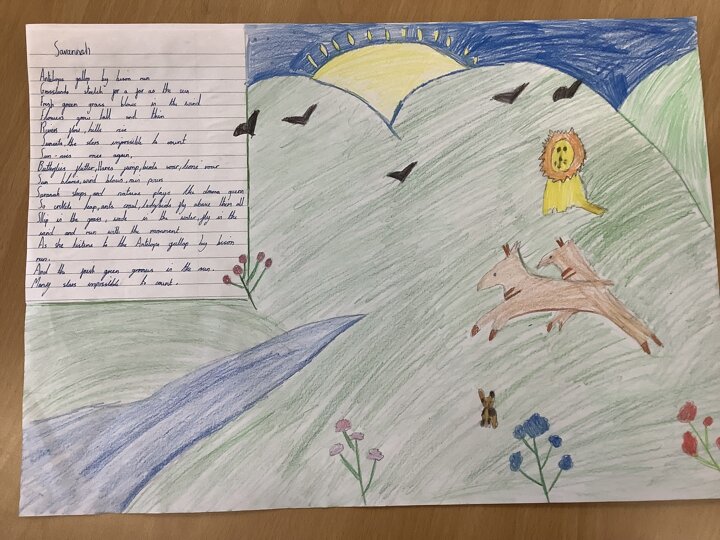 Savannah
Antilope gallop by bison run
Grasslands stretch for a far as the sea
Fresh green grass blows in the wind
Flowers grow tall and thin
Rivers flow, hills rise
Sunsets, the stars impossible to count
Sun rises once again,
Butterflies flutter, Hares jump, birds soar, lions roar
Sun blares, wind blows, rain pours
Savanah sleeps and nature plays the drama queen
So crickets leap, ants crawl, ladybirds fly above them all
Slip in the grass, wade in the water, fly in the
wind and run with the monment
As she listens to the Antilope gallop by bison
run.
And the fresh green grows in the sun.
Many stars impossible to count.